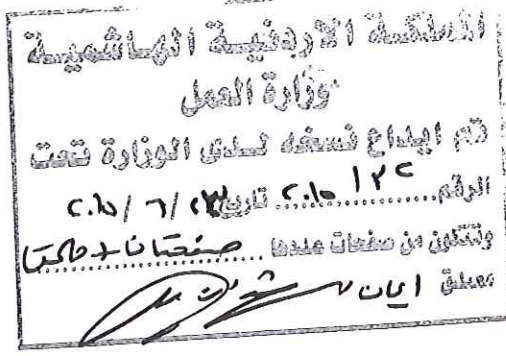 المملكة الاردنية الهاشمية
وزارة العمل
تم ايداع نسخة لدى الوزارة تحت
الرقم ........ تاريخ ٢٠١٥/٦/
وتتكون من صفحات عددها صفحتان + ملحق
ايمان